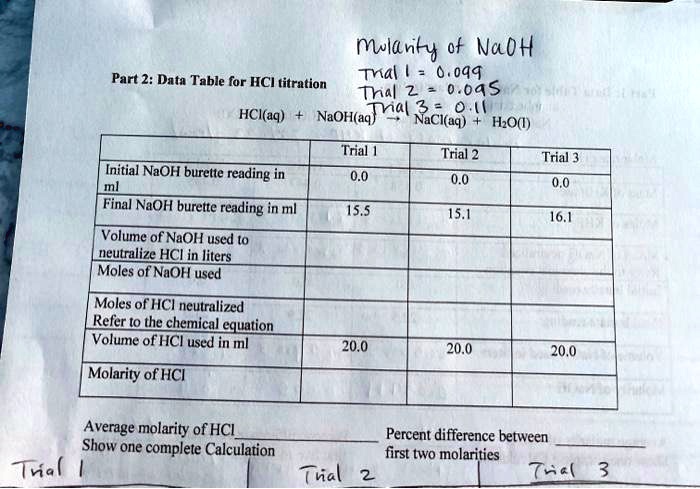 Molarity of NaOH
Trial 1 = 0.099
Part 2: Data Table for HCl titration
Trial 2 = 0.095
Trial 3 = 0.11
HCl(aq) + NaOH(aq) → NaCl(aq) + H₂O(l)
Trial 1 Trial 2 Trial 3
Initial NaOH burette reading in 0.0 0.0 0.0
ml
Final NaOH burette reading in ml 15.5 15.1 16.1
Volume of NaOH used to
neutralize HCl in liters
Moles of NaOH used
Moles of HCl neutralized
Refer to the chemical equation
Volume of HCl used in ml 20.0 20.0 20.0
Molarity of HCl
Average molarity of HCl Percent difference between
Show one complete Calculation first two molarities
Trial 1 Trial 2 Trial 3